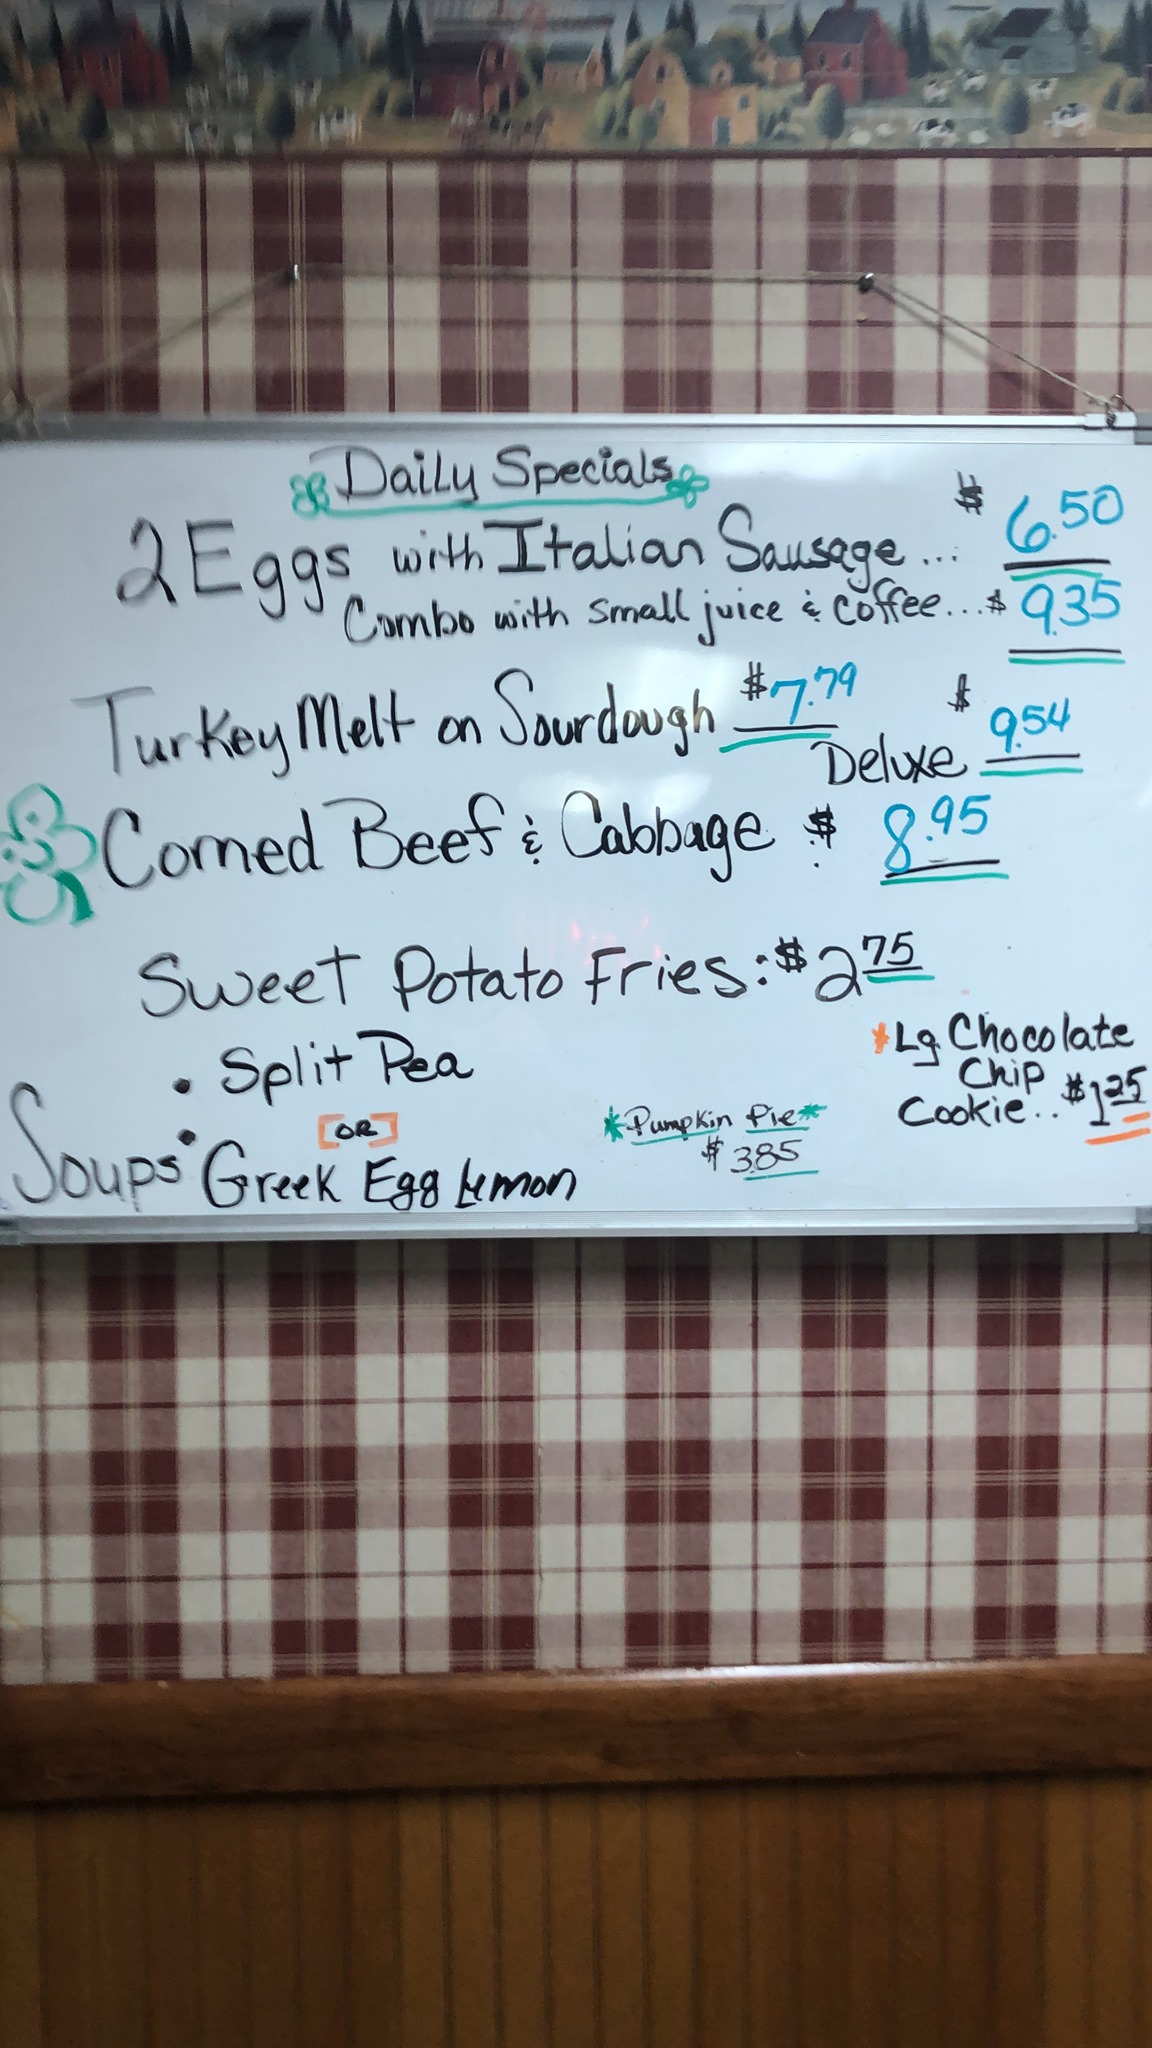 Daily Specials
2 Eggs with Italian Sausage ... $ 6.50
Combo with small juice & coffee... $ 9.35
Turkey Melt on Sourdough $7.79
Deluxe $ 9.54
Corned Beef & Cabbage $ 8.95
Sweet Potato Fries: $2 75
• Split Pea
[OR]
Soups • Greek Egg Lemon
*Pumpkin Pie*
$ 3.85
*Lg Chocolate
Chip
Cookie.. $1 25